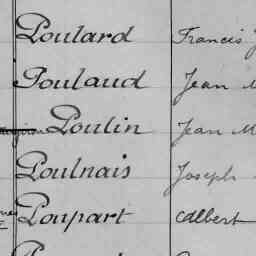 Poulard Francis
Poulaud Jean M
Poulin Jean M
Poulnais Joseph
Poupart Albert